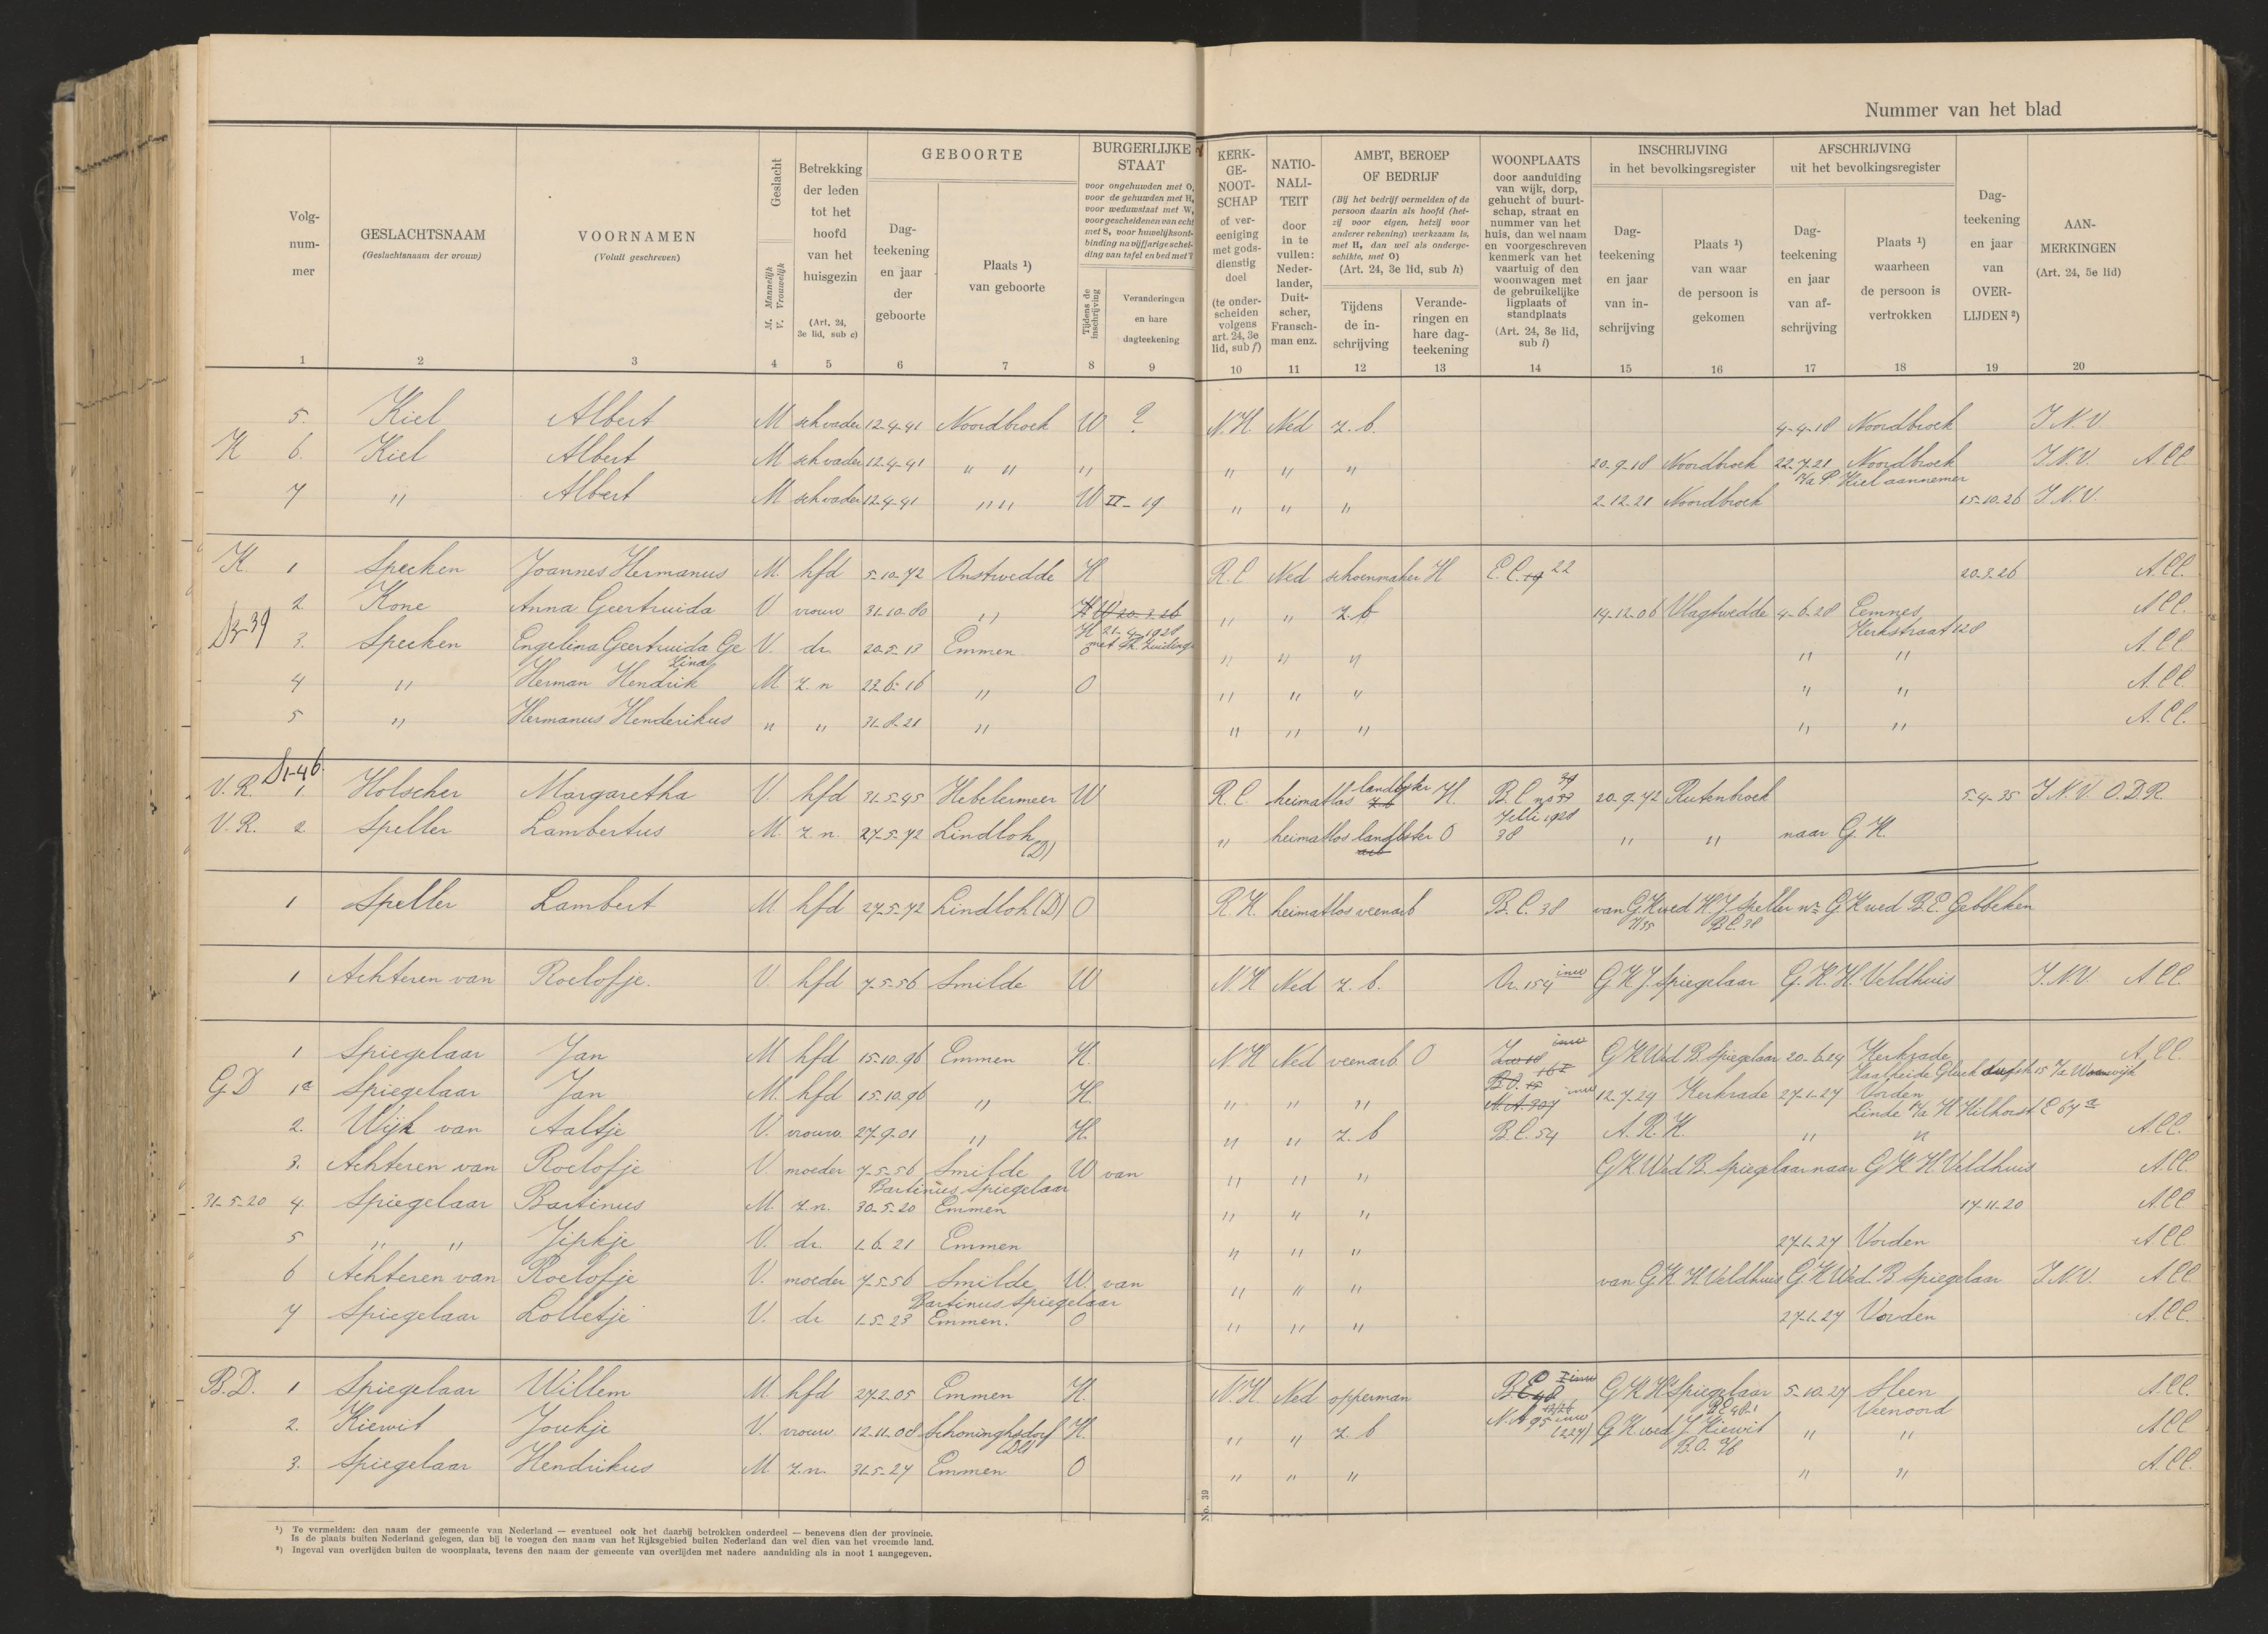 Nummer van het blad
Volg-
num-
mer
GESLACHTSNAAM
(Geslachtsnaam der vrouw)
VOORNAMEN
(Voluit geschreven)
Geslacht
M. Mannelijk
V. Vrouwelijk
Betrekking
der leden
tot het
hoofd
van het
huisgezin
(Art. 24,
3e lid, sub c)
GEBOORTE
Dag-
teekening
en jaar
der
geboorte
Plaats ¹)
van geboorte
BURGERLIJKE
STAAT
voor ongehuwden met O,
voor de gehuwden met H,
voor weduwstaat met W,
voor gescheidenen van echt
met S, voor huwelijksont-
binding na vijfjarige schei-
ding van tafel en bed met T
Tijdens de
inschrijving
Veranderingen
en hare
dagteekening
KERK-
GE-
NOOT-
SCHAP
of ver-
eeniging
met gods-
dienstig
doel
(te onder-
scheiden
volgens
art. 24, 3e
lid, sub f)
NATIO-
NALI-
TEIT
door
in te
vullen:
Neder-
lander,
Duit-
scher,
Fransch-
man enz.
AMBT, BEROEP
OF BEDRIJF
(Bij het bedrijf vermelden of de
persoon daarin als hoofd (het-
zij voor eigen, hetzij voor
anderer rekening) werkzaam is,
met H, dan wel als onderge-
schikte, met O)
(Art. 24, 3e lid, sub h)
Tijdens
de in-
schrijving
Verande-
ringen en
hare dag-
teekening
WOONPLAATS
door aanduiding
van wijk, dorp,
gehucht of buurt-
schap, straat en
nummer van het
huis, dan wel naam
en voorgeschreven
kenmerk van het
vaartuig of den
woonwagen met
de gebruikelijke
ligplaats of
standplaats
(Art. 24, 3e lid,
sub i)
INSCHRIJVING
in het bevolkingsregister
Dag-
teekening
en jaar
van in-
schrijving
Plaats ¹)
van waar
de persoon is
gekomen
AFSCHRIJVING
uit het bevolkingsregister
Dag-
teekening
en jaar
van af-
schrijving
Plaats ¹)
waarheen
de persoon is
vertrokken
Dag-
teekening
en jaar
van
OVER-
LIJDEN ²)
AAN-
MERKINGEN
(Art. 24, 5e lid)
1 2 3 4 5 6 7 8 9 10 11 12 13 14 15 16 17 18 19 20
5. Kiel Albert M schvader 12-4-41 Noordbroek W ? N.H. Ned z. b. 4-4-18 Noordbroek I.N.V.
K 6. Kiel Albert M schvader 12-4-41 " " " " " " 20-9-18 Noordbroek 22-7-21 Noordbroek I.N.V. A.Cl.
p/a P Kiel aannemer
7 " Albert M schvader 12-4-41 " " W II-19 " " " 2-12-21 Noordbroek 15-10-26 I.N.V.
K. 1 Specken Joannes Hermanus M. hfd 5-10-72 Onstwedde H R.C Ned schoenmaker H E.C. 19 22 20-3-26 A.Cl.
2 Kone Anna Geertruida V. vrouw 31-10-80 " H W 20-3-26 " " z.b 14-12-06 Vlagtwedde 4-6-28 Eemnes A.Cl.
H 21-4-1928 Kerkstraat 128
3. Specken Engelina Geertruida Ge V. dr. 20-5-13 Emmen O " " " " " A.Cl
zina
4 " Herman Hendrik M z.n 22-6-16 " O " " " " " A.Cl.
5 " Hermanus Henderikus " " 31-8-21 " " " " " " A.Cl.
V.R. 1. Holscher Margaretha V. hfd 31-5-45 Hebelermeer W R.C. heimatlos landbktr H. B.C no 37 20-9-72 Rutenbroek 5-4-35 I.N.V. O.D.R.
V.R. 2. Speller Lambertus M. z.n. 27-5-72 Lindloh (D) " heimatlos landbktr O 38 " " naar G.K.
1 Speller Lambert M. hfd 27-5-72 Lindloh (D) O R.K. heimatlos veenarb B.C. 38 van G.K wed H.J. Speller nr G K wed B.E. Gebbeken
B.C. 38
1 Achteren van Roelofje. V. hfd 7-5-56 Smilde W N.H Ned z. b. Or. 154 inw G K J. Spiegelaar G.K. H. Veldhuis I.N.V. A.Cl.
1 Spiegelaar Jan M. hfd 15-10-96 Emmen H. N.H Ned veenarb O G K Wed B. Spiegelaar 20-6-24 Kerkrade A.Cl.
G.D 1a Spiegelaar Jan M. hfd 15-10-96 " H. " " " N.A. 307 inw 12-7-24 Kerkrade 27-1-27 Vorden
Linde p/a H Hilhorst E 67a
2. Wijk van Aaltje V. vrouw 27-9-01 " H. " " z. b B.C. 54 A.R.K. " " A.Cl.
3. Achteren van Roelofje V. moeder 7-5-56 Smilde W van " " " G K Wed B. Spiegelaar naar G K H. Veldhuis A.Cl.
Bartinus Spiegelaar
31-5-20 4. Spiegelaar Bartinus M. z.n. 30-5-20 Emmen " " " 17-11-20 A.Cl
5 " " Jipkje V. dr. 1-6-21 Emmen " " " 27-1-27 Vorden A.Cl
6 Achteren van Roelofje V. moeder 7-5-56 Smilde W. van " " " van G.K. H. Veldhuis G K Wed. B Spiegelaar I.N.V. A.Cl.
Bartinus Spiegelaar
7 Spiegelaar Lolletje V. dr 1-5-23 Emmen. O " " " 27-1-27 Vorden A.Cl.
B.D. 1 Spiegelaar Willem M. hfd 27-2-05 Emmen H. N.H Ned opperman G K H Spiegelaar 5-10-27 Sleen A.Cl.
Veenoord
2. Kiewit Joukje V. vrouw 12-11-08 Schoninghsdorf H. " " z. b N.A 95 inw G K wed J. Kiewit " " A.Cl
3. Spiegelaar Hendrikus M z.n. 31-5-27 Emmen O " " " " " A.Cl.
No. 39
¹) Te vermelden: den naam der gemeente van Nederland — eventueel ook het daarbij betrokken onderdeel — benevens dien der provincie.
Is de plaats buiten Nederland gelegen, dan bij te voegen den naam van het Rijksgebied buiten Nederland dan wel dien van het vreemde land.
²) Ingeval van overlijden buiten de woonplaats, tevens den naam der gemeente van overlijden met nadere aanduiding als in noot 1 aangegeven.